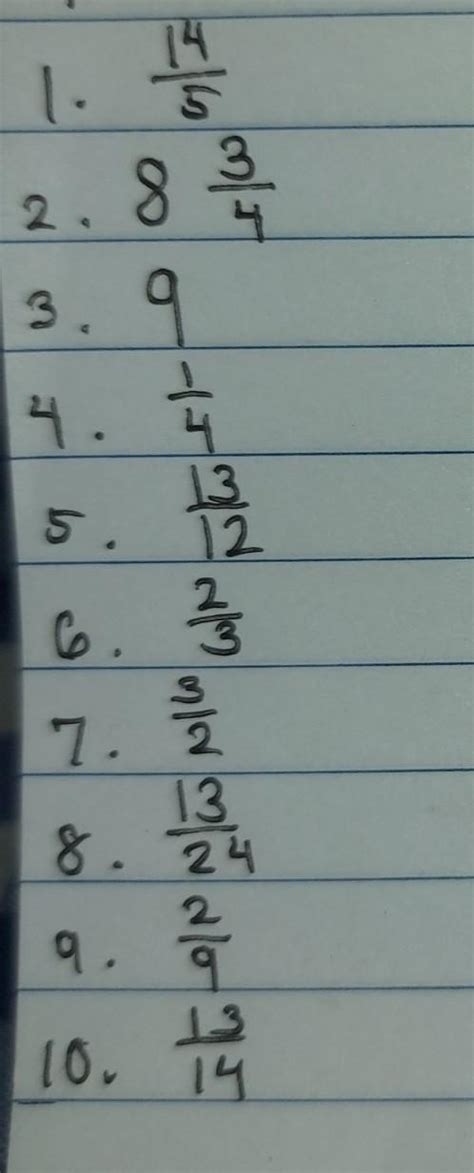 1. 14/5
2. 8 3/4
3. 9
4. 1/4
5. 13/12
6. 2/3
7. 3/2
8. 13/24
9. 2/9
10. 13/14